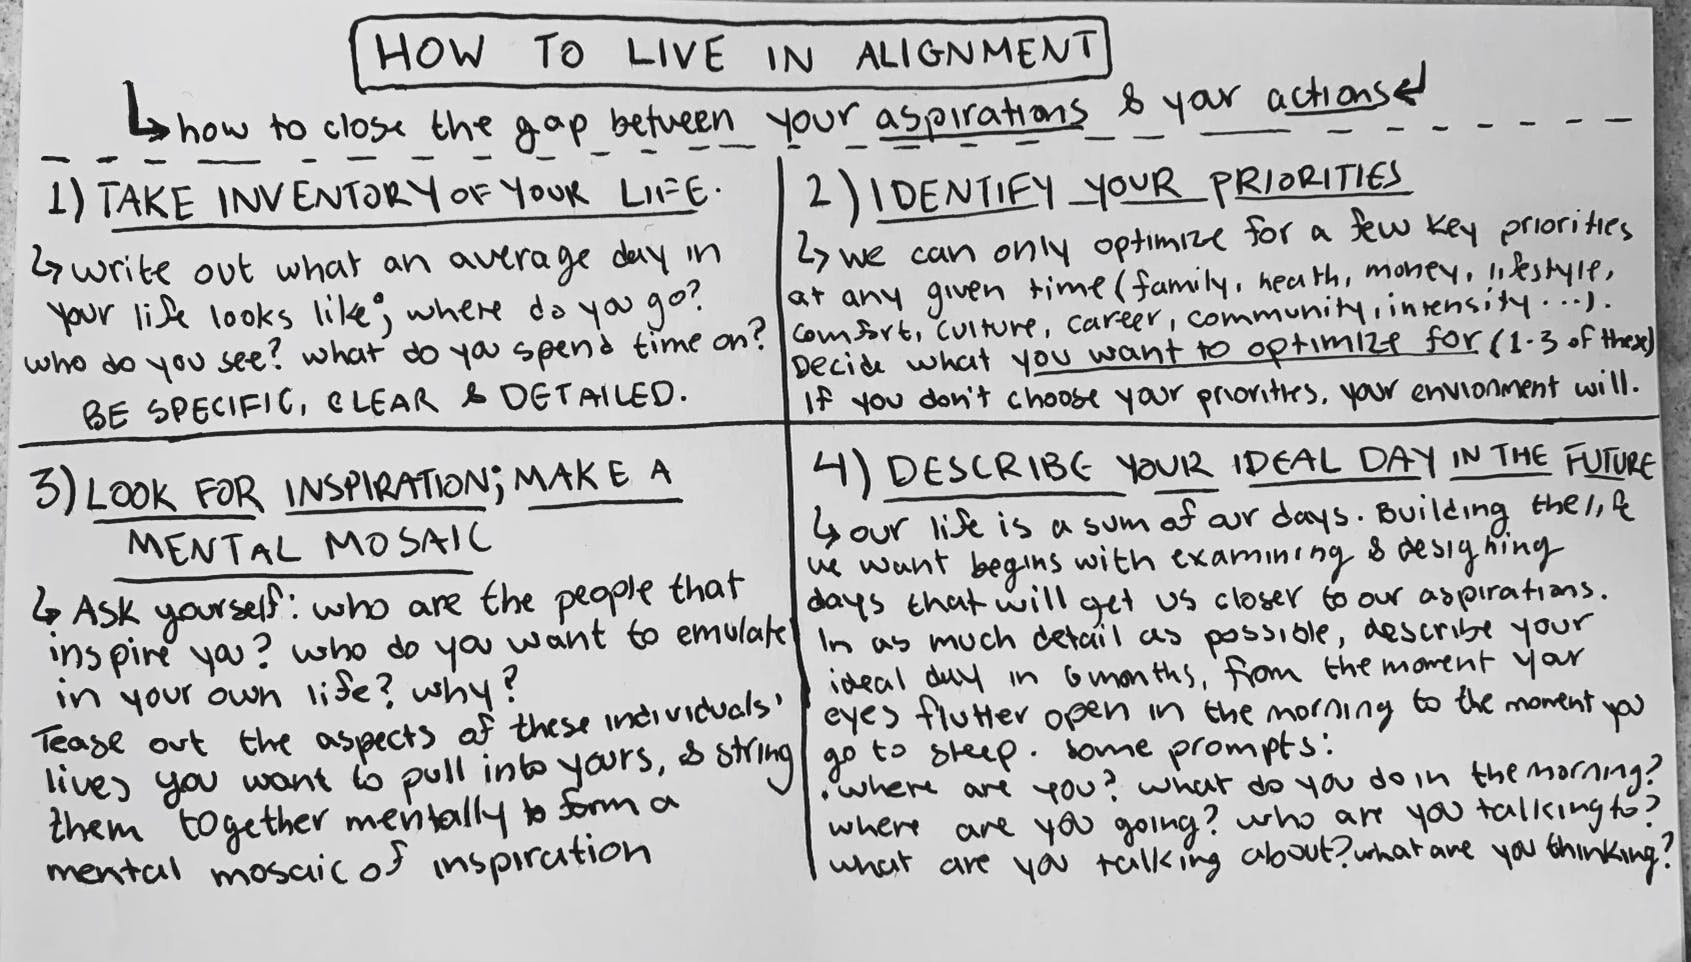 HOW TO LIVE IN ALIGNMENT
how to close the gap between your aspirations & your actions
1) TAKE INVENTORY OF YOUR LIFE.
write out what an average day in
your life looks like; where do you go?
who do you see? what do you spend time on?
BE SPECIFIC, CLEAR & DETAILED.
2) IDENTIFY YOUR PRIORITIES
we can only optimize for a few key priorities
at any given time (family, health, money, lifestyle,
comfort, culture, career, community, intensity ...).
Decide what you want to optimize for (1-3 of these)
If you don't choose your priorities, your envionment will.
3) LOOK FOR INSPIRATION; MAKE A
MENTAL MOSAIC
Ask yourself: who are the people that
inspire you? who do you want to emulate
in your own life? why?
Tease out the aspects of these individuals'
lives you want to pull into yours, & string
them together mentally to form a
mental mosaic of inspiration
4) DESCRIBE YOUR IDEAL DAY IN THE FUTURE
our life is a sum of our days. Building the life
we want begins with examining & designing
days that will get us closer to our aspirations.
In as much detail as possible, describe your
ideal day in 6 months, from the moment your
eyes flutter open in the morning to the moment you
go to sleep. Some prompts:
. where are you? what do you do in the morning?
where are you going? who are you talking to?
what are you talking about? what are you thinking?